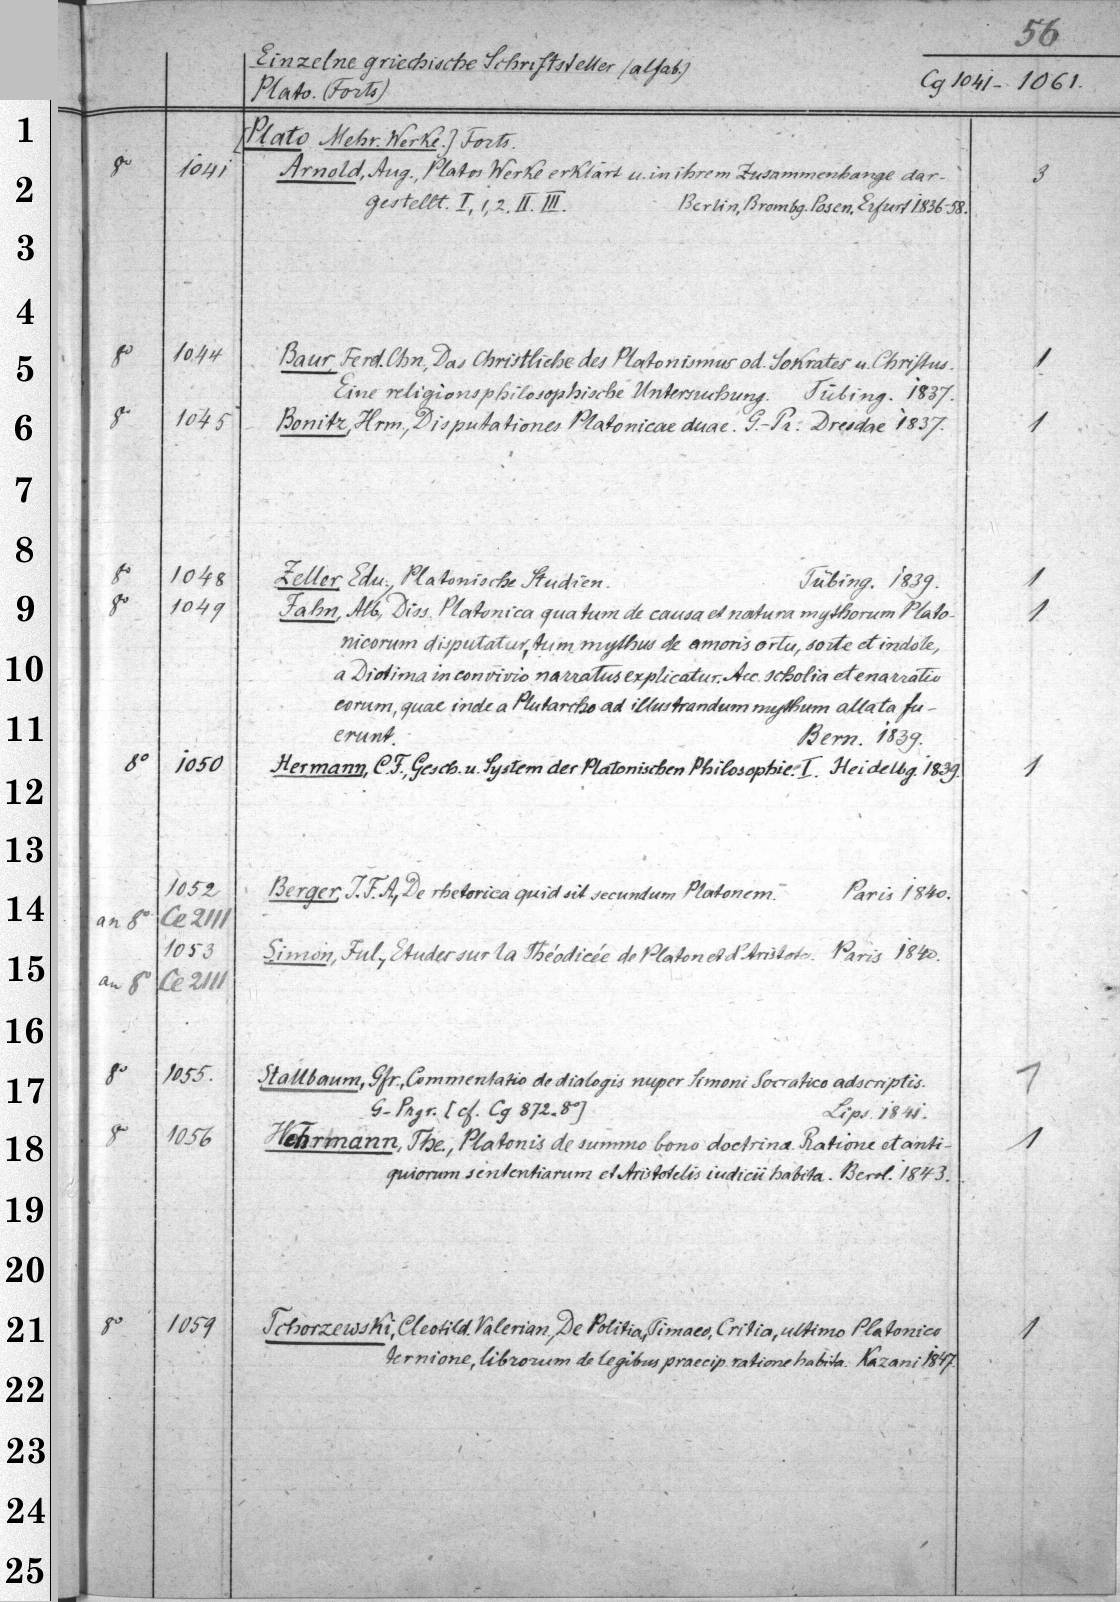 56
Einzelne griechische Schriftsteller (alfab.)
Plato. (Forts)
Cg 1041 - 1061.
1
[Plato Mehr. Werke.] Forts.
8° 1041 Arnold, Aug., Platos Werke erklärt u. in ihrem Zusammenhange dar- 3
2
gestellt. I, 1, 2. II. III. Berlin, Brombg. Posen, Erfurt 1836-58.
3
4
8° 1044 Baur, Ferd. Chn, Das Christliche des Platonismus od. Sokrates u. Christus. 1
5
Eine religionsphilosophische Untersuchung. Tübing. 1837.
8° 1045 Bonitz, Hrm., Disputationes Platonicae duae. G.-Pr. Dresdae 1837. 1
6
7
8
8° 1048 Zeller, Edu., Platonische Studien. Tübing. 1839. 1
9
8° 1049 Jahn, Alb., Diss. Platonica qua tum de causa et natura mythorum Plato- 1
nicorum disputatur, tum mythus de amoris ortu, sorte et indole,
10
a Diotima in convivio narratus explicatur. Acc. scholia et enarratio
eorum, quae inde a Plutarcho ad illustrandum mythum allata fu-
11
erunt. Bern. 1839.
8° 1050 Hermann, C.F., Gesch. u. System der Platonischen Philosophie. I. Heidelbg. 1839. 1
12
13
1052 Berger, J.F.A., De rhetorica quid sit secundum Platonem. Paris 1840.
14
an 8° Ce 2111
1053 Simon, Jul., Etudes sur la Théodicée de Platon et d'Aristote. Paris 1840.
15
an 8° Ce 2111
16
8° 1055. Stallbaum, Gfr., Commentatio de dialogis nuper Simoni Socratico adscriptis. 1
17
G-Prgr. [cf. Cg 872.8°] Lips. 1841.
8° 1056 Wehrmann, The., Platonis de summo bono doctrina. Ratione et anti- 1
18
quiorum sententiarum et Aristotelis iudicii habita. Berol. 1843.
19
20
8° 1059 Tchorzewski, Cleotild. Valerian, De Politia, Timaeo, Critia, ultimo Platonico 1
21
ternione, librorum de legibus praecip. ratione habita. Kazani 1847.
22
23
24
25